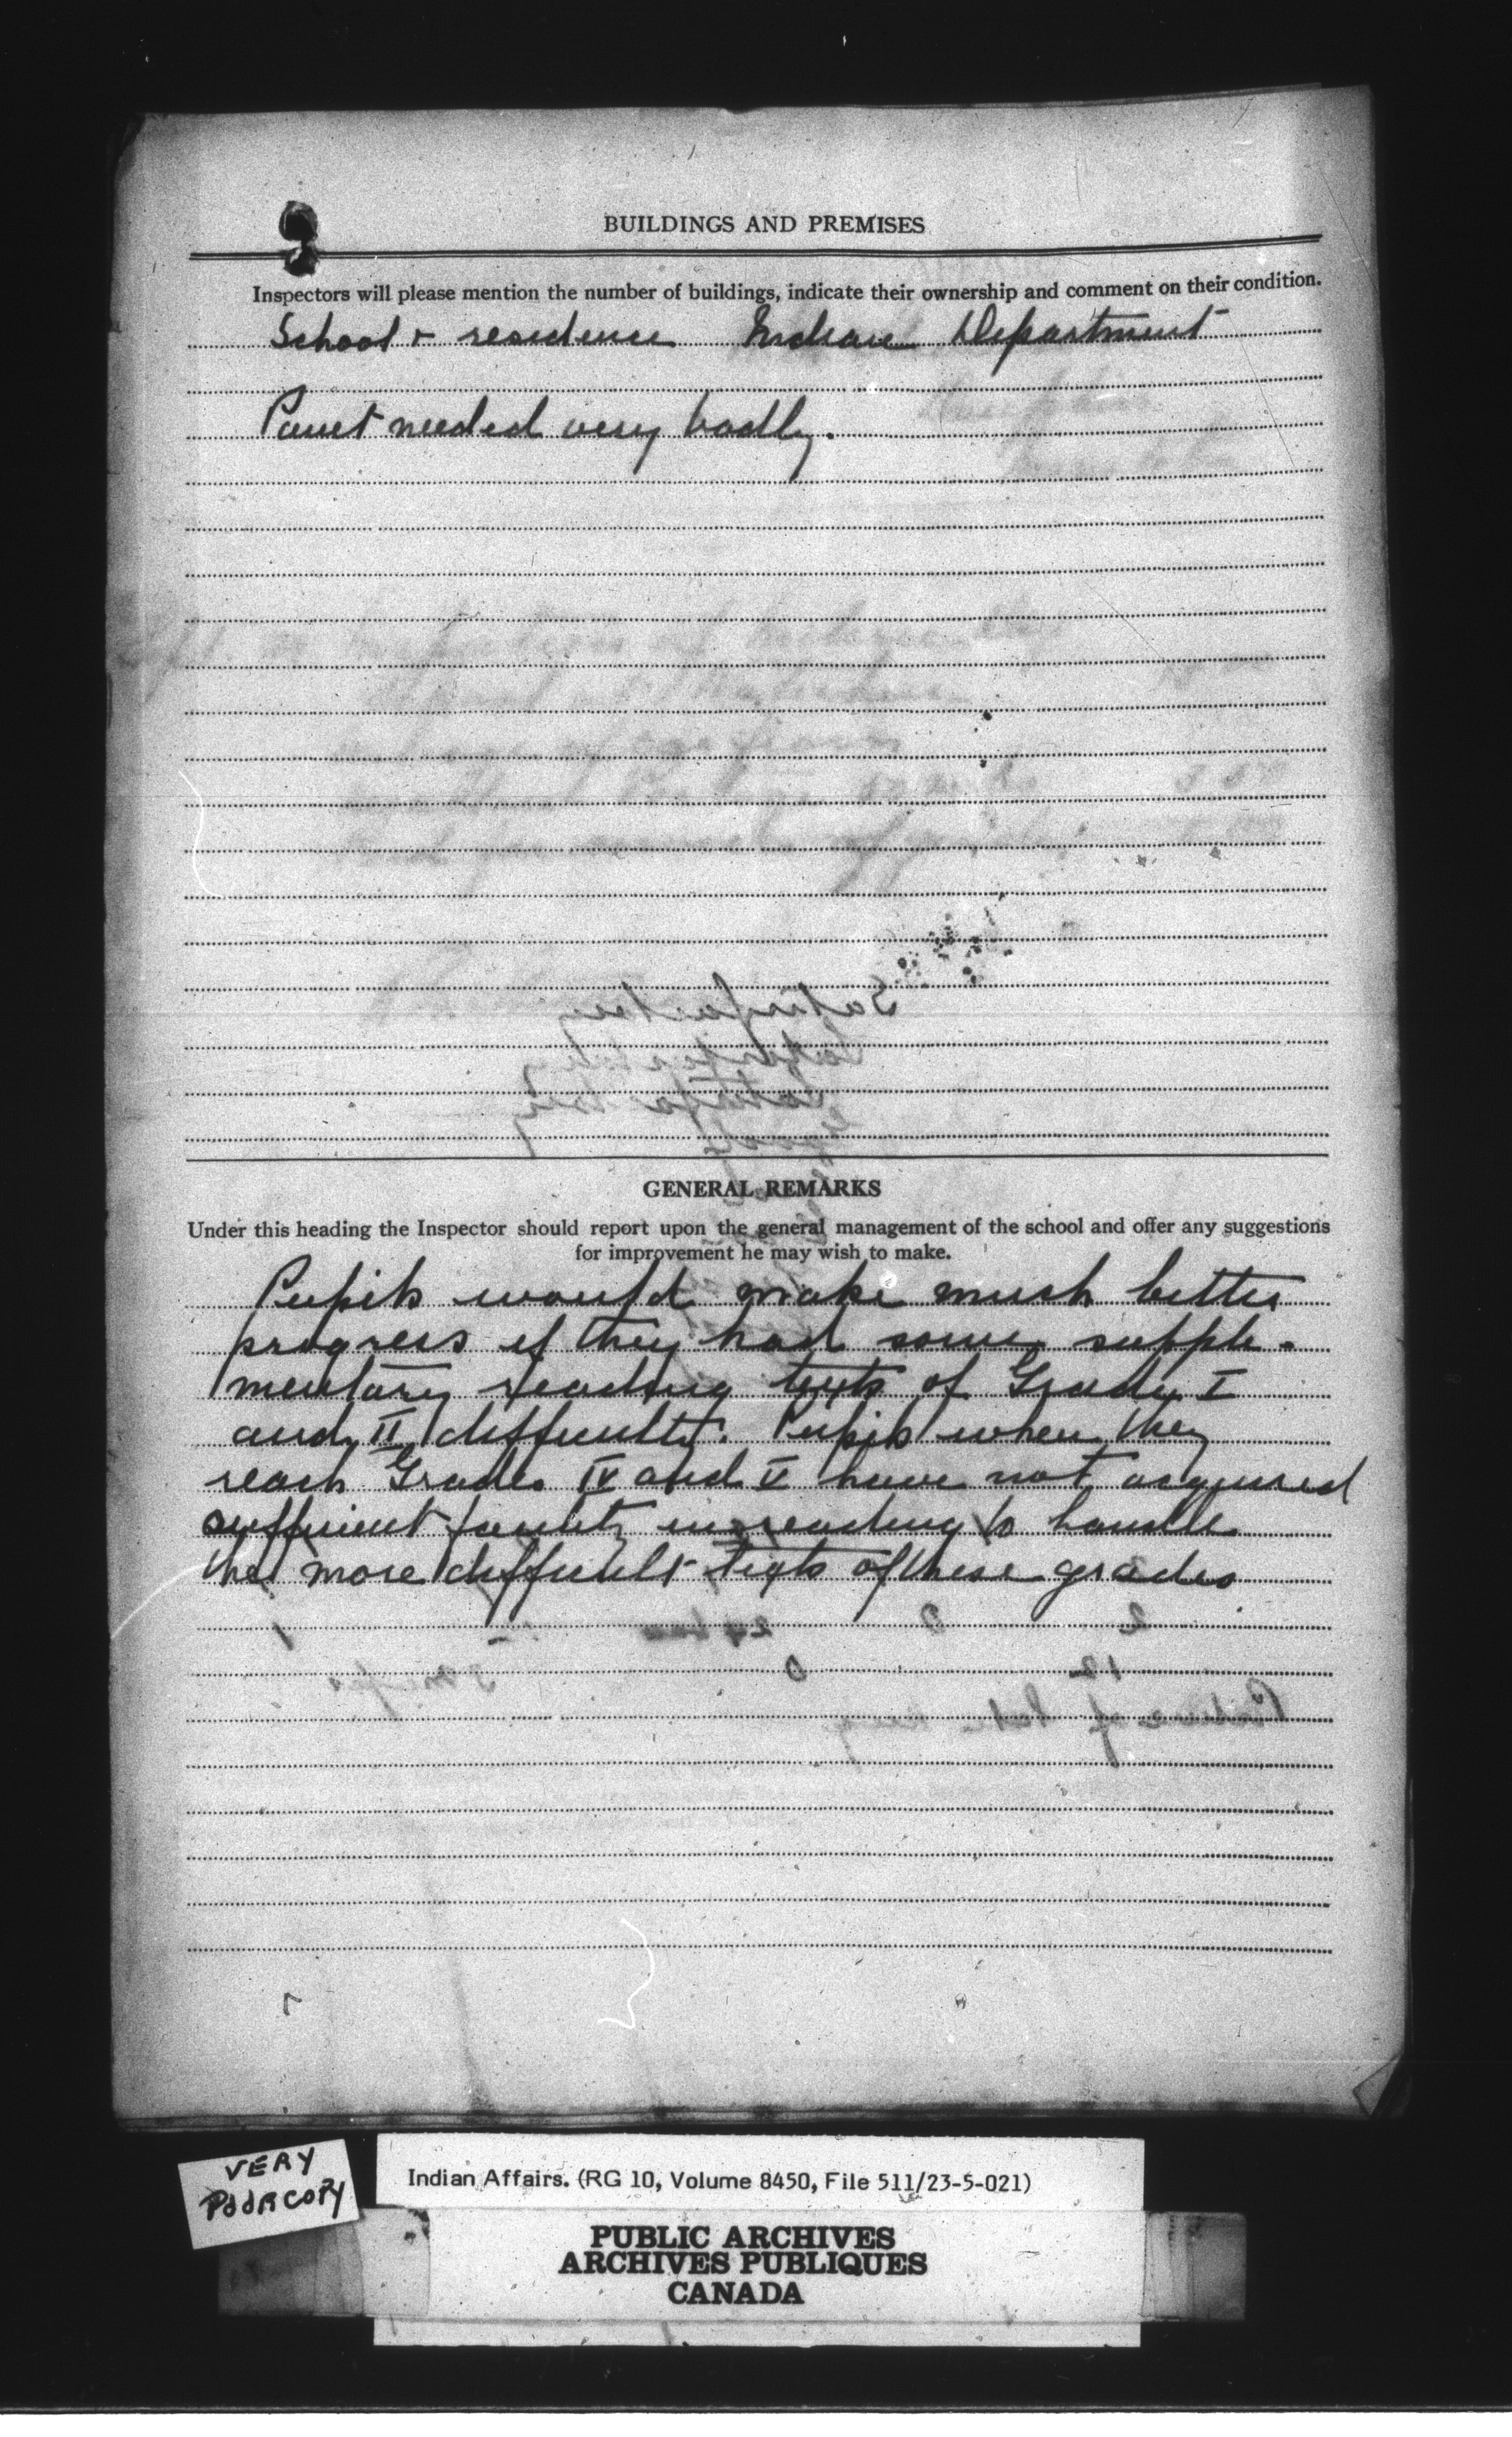 BUILDINGS AND PREMISES
Inspectors will please mention the number of buildings, indicate their ownership and comment on their condition.
School & residence Indian Department
Paint needed very badly.
GENERAL REMARKS
Under this heading the Inspector should report upon the general management of the school and offer any suggestions
for improvement he may wish to make.
Pupils would make much better
progress if they had some supple-
mentary reading texts of Grade I
and II difficulty. Pupils when they
reach Grades IV and V have not acquired
sufficient facility in reading to handle
the more difficult texts of these grades
VERY
POOR COPY
Indian Affairs. (RG 10, Volume 8450, File 511/23-5-021)
PUBLIC ARCHIVES
ARCHIVES PUBLIQUES
CANADA